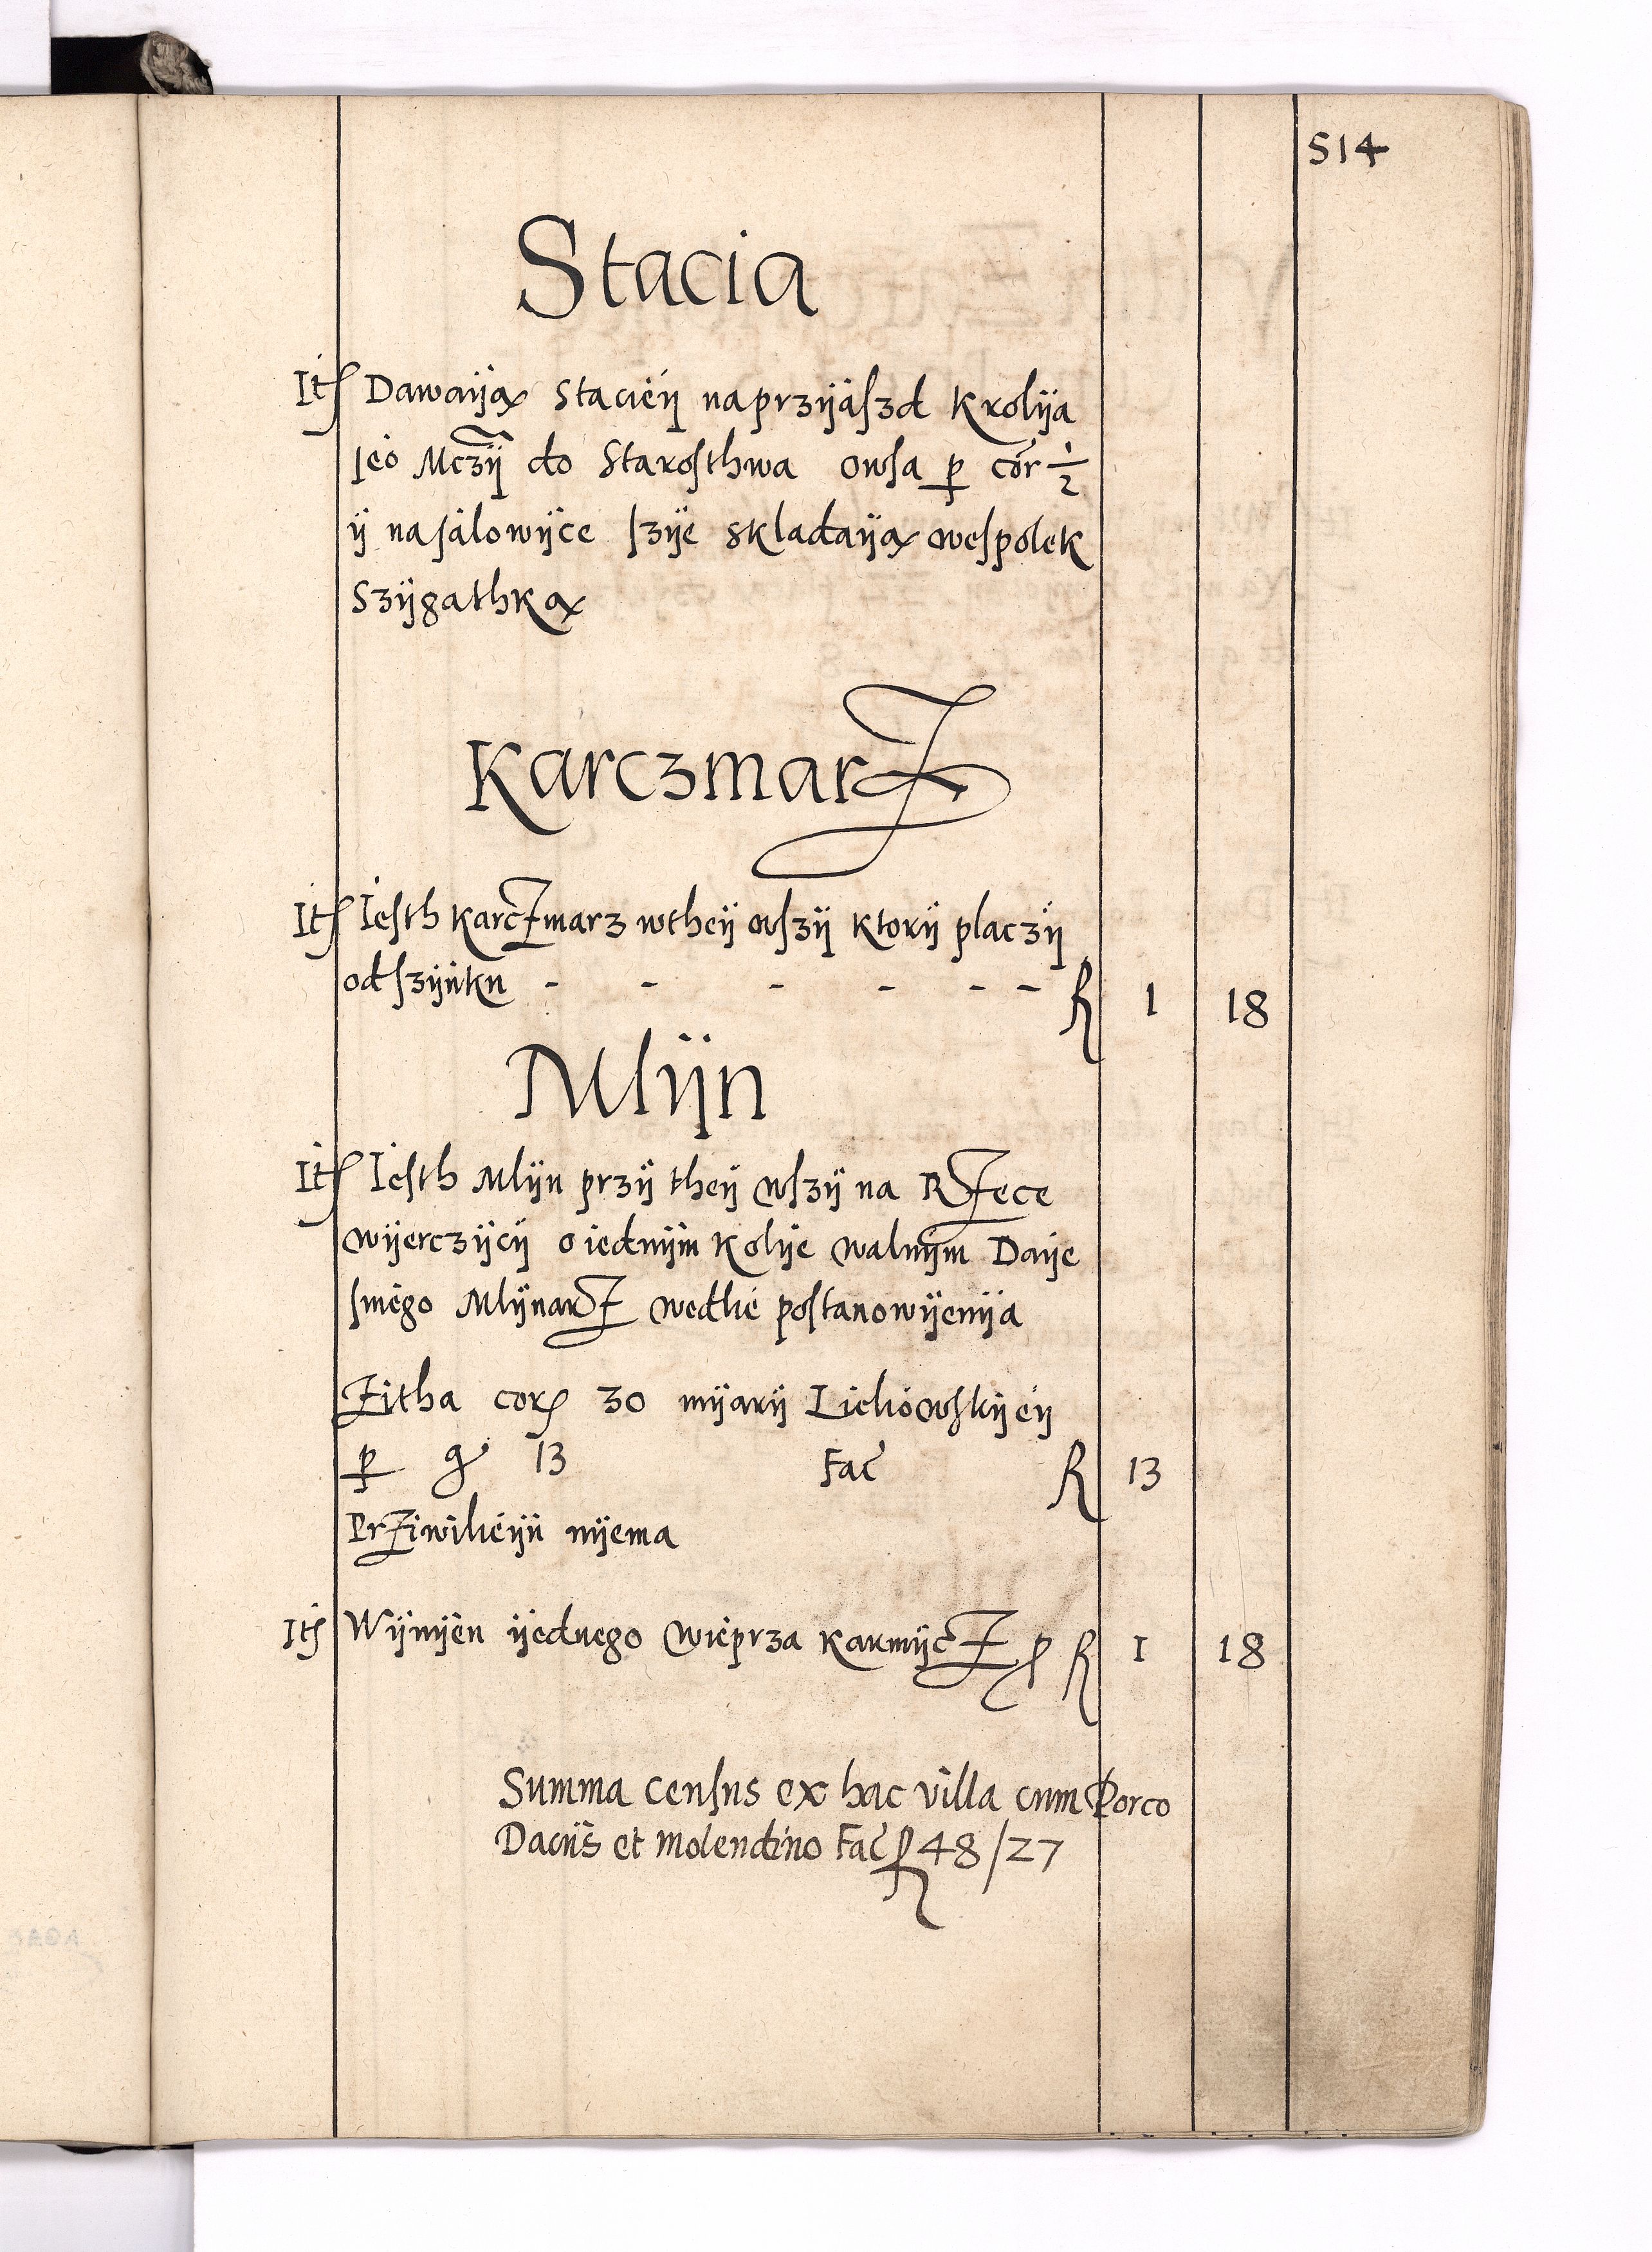 514
Stacia
Itꝭ Dawaÿą Stacieÿ na przÿaſzd Krolÿa
Ieo Mczÿ do Staroſthwa owſa ꝑ cor ½
ÿ na ſalowÿce ſzÿe składaÿą weſpolek
Szÿgathką
KarczmarZ
Itꝭ Ieſth karcZmarz wtheÿ wſzÿ ktorÿ placzÿ
od ſzÿnku - - - - - - R 1 18
Mlÿn
Itꝭ Ieſth Mlÿn przÿ theÿ wſzÿ na RZece
wÿerczÿcÿ o iednÿm kolÿe walnÿm Daÿe
ſnego MlÿnarZ wedlie poſtanowÿenÿa
Zitha corꝭ 30 mÿarÿ Lielowſkÿeÿ
ꝑ g 13 Fac R 13
PrZiwilieÿü nÿema
Itꝭ Wÿnÿen ÿednego wieprza karmÿcZ ꝑ R 1 18
Summa cenſus ex hac villa cum Porco
Daciis et molendino Fac R 48/27